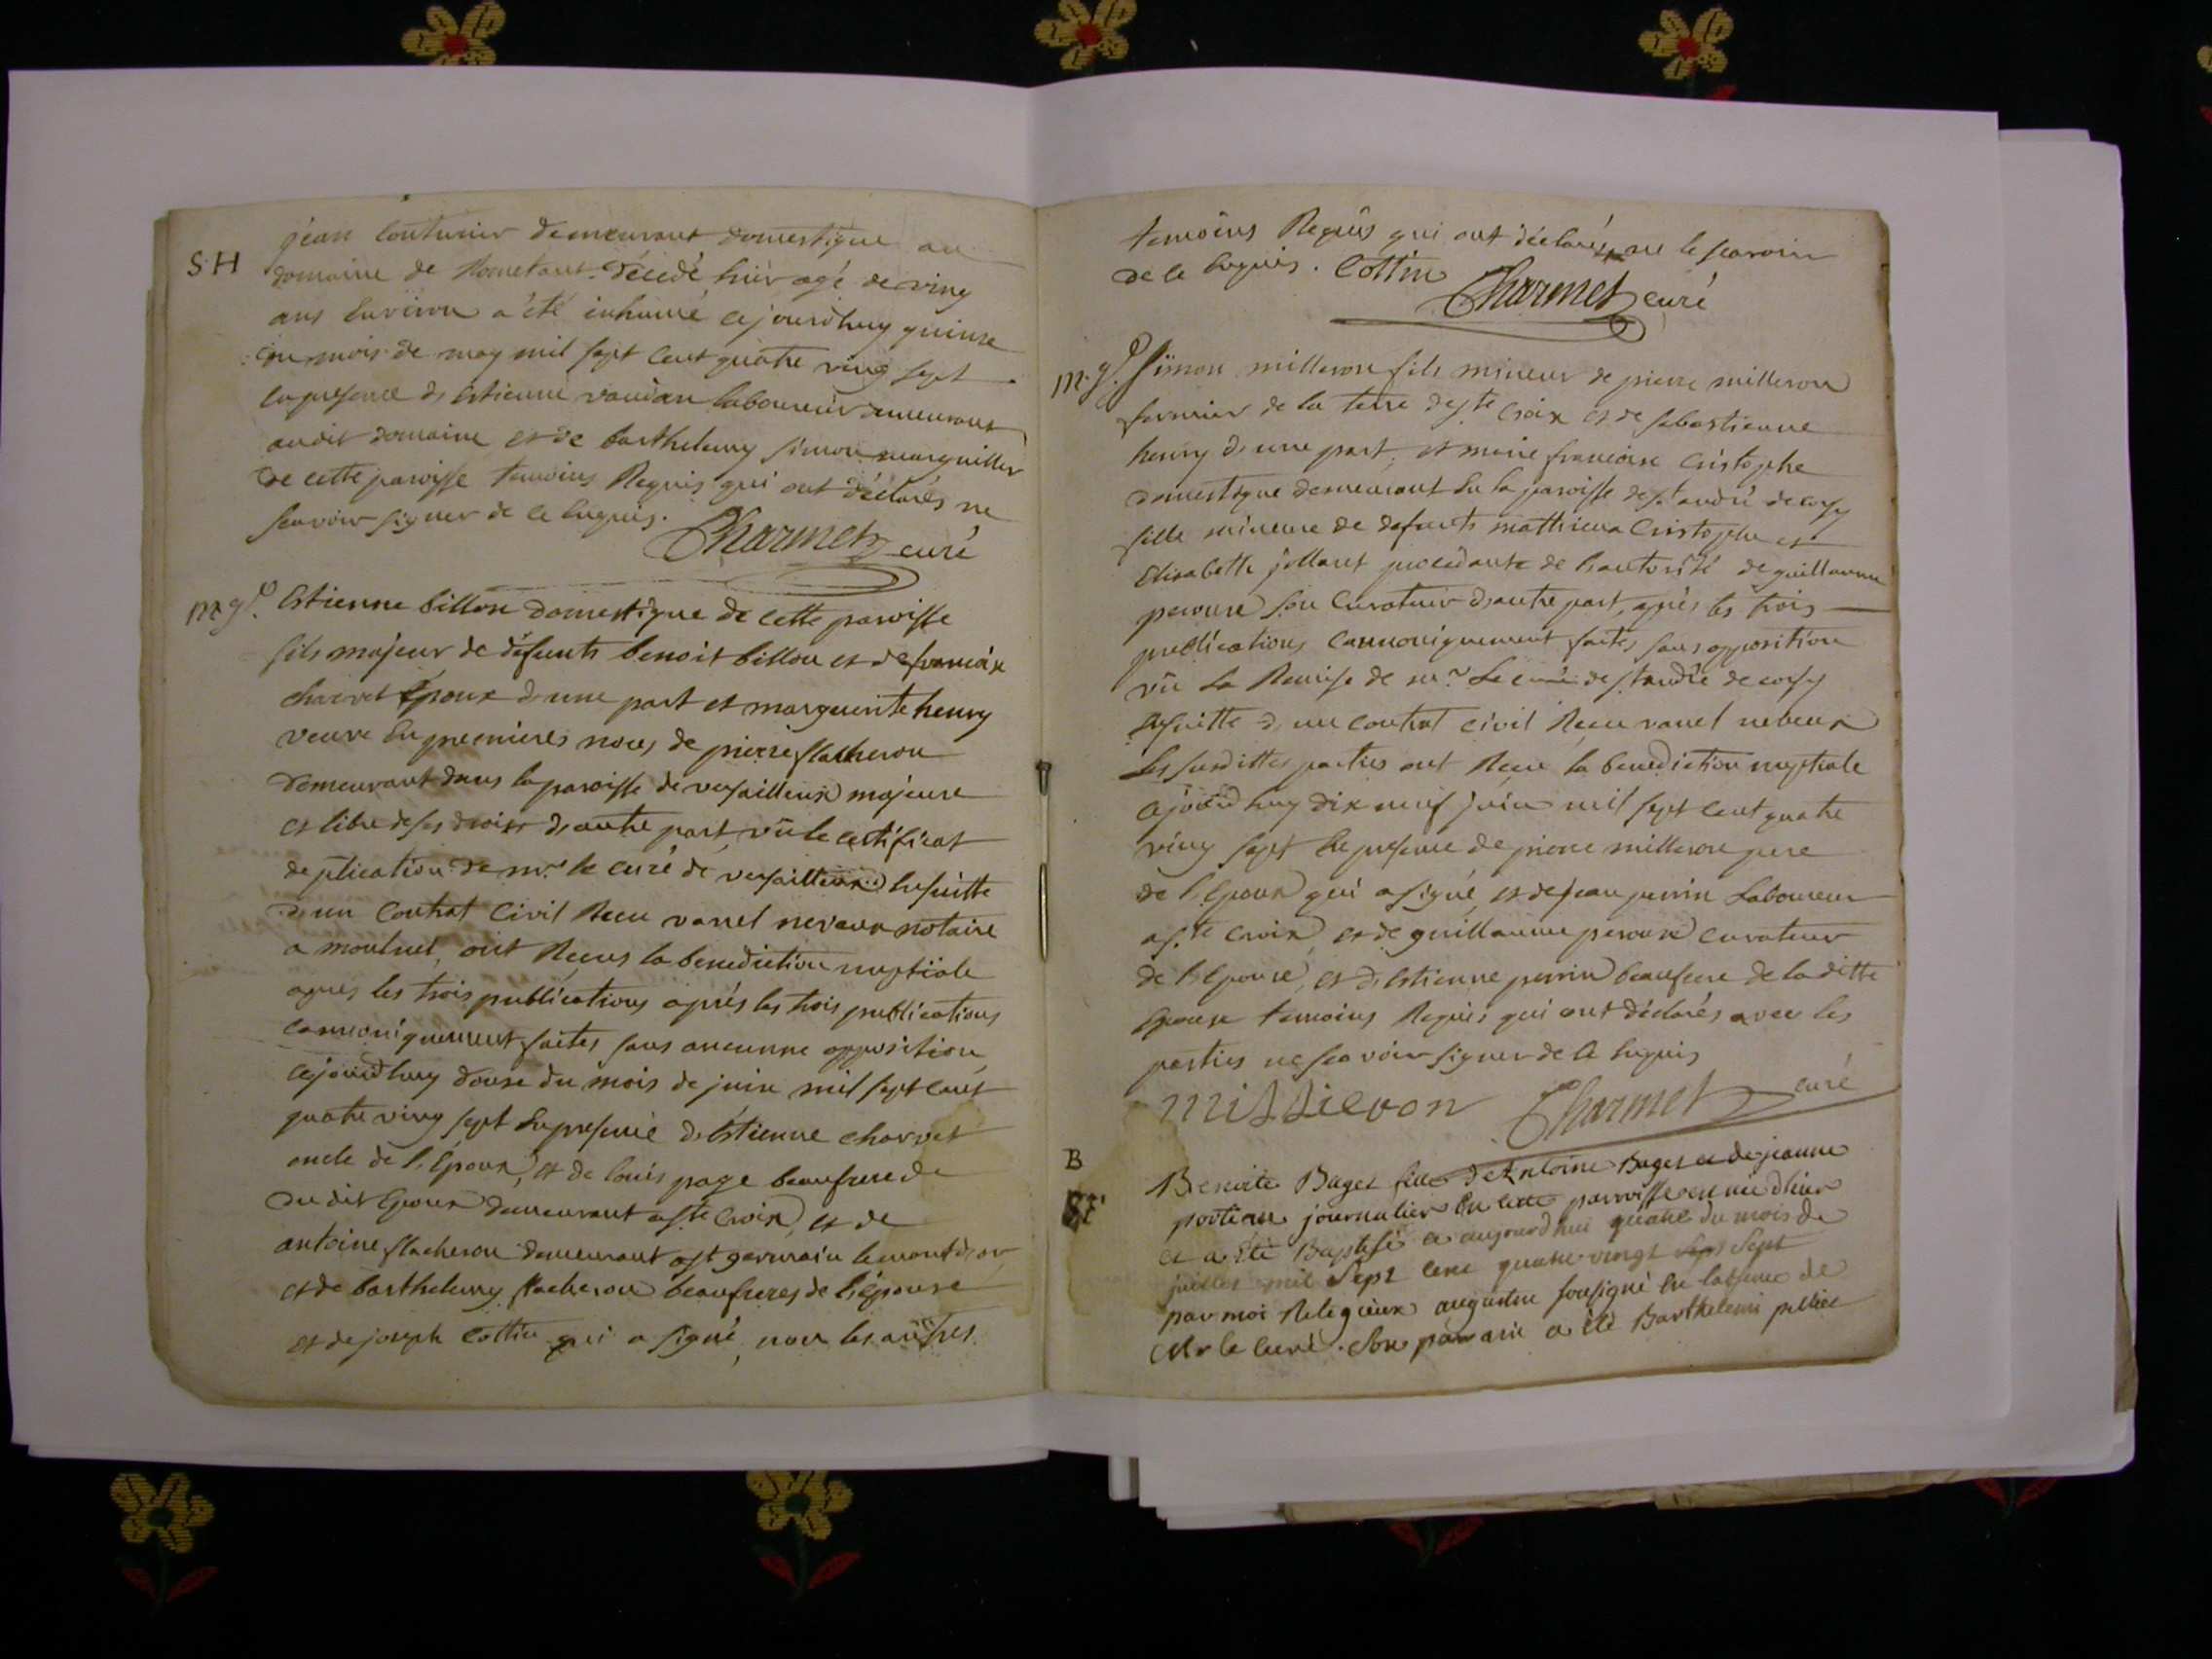 S.H
jean Couturier demeurant domestique au
domaine de décédé hier agé de ving
ans Environ a été inhumé cejourdhuy quinse
du mois de may mil sept cent quatre ving sept
En presence d'Estienne vaudan laboureur demeurant
audit domaine et de barthelemy simon marguillier
de cette paroisse temoins Requis qui ont déclarés ne
scavoir signer de ce Enquis. Charmet curé
m.gé. Estienne billon domestique de cette paroisse
fils majeur de défunts benoit billon et de francoise
charvet Epoux d'une part et marguerite henry
veuve En premieres noces de pierre flacheron
demeurant dans la paroisse de versailleux majeure
et libre de ses droits d'autre part, vû le certificat
de plication de mr. le curé de versailleux Ensuitte
d'un Contrat Civil Recu vanel neveux notaire
a montluel, ont Recus la benediction nuptiale
apres les trois publications après les trois publications
cannoniquement faites sans aucunne opposition
cejourdhuy douse du mois de juin mil sept cent
quatre ving sept En presence d'Estienne charvet
oncle de l'Epoux, et de louis page beaufrere de
du dit Epoux demeurant a ste Croix, et de
antoine flacheron demeurant a st germain le mont d'or
et de barthelemy flacheron beaufreres de l'épouse
et de joseph Cottin qui a signé, non les autres
temoins Requis qui ont déclarés ne le scavoir
de ce Enquis. Cottin
Charmet curé
m.gé. Simon milleron fils mineur de pierre milleron
fermier de la terre de ste Croix et de sebastienne
henry d'une part, et marie francoise Cristophe
domestique demeurant En la paroisse de st andré de corsy
fille mineure de defunts mathieu Cristophe et
Elisabeth jollant procedante de l'autorité de guillaume
perouse son Curateur d'autre part, après les trois
publications Cannoniquement faites sans opposition
vû la Remise de mr. Le curé de st andré de corsy
Ensuitte d'un contrat civil Recu vanel neveux
les susdittes parties ont Recu la benediction nuptiale
cejourdhuy dix neuf juin mil sept cent quatre
ving sept En presence de pierre milleron pere
de l'Epoux qui a signé, et de jean perrin Laboureur
a ste Croix, et de guillaume perouse curateur
de l'Epouse, et d'Estienne perrin beaufrere de la ditte
Epouse temoins Requis qui ont déclarés avec les
parties ne scavoir signer de ce Enquis
millieron Charmet curé
B
Benoite Buget fille d'Antoine Buget et de jeanne
journalier En cette parroisse est née d'hier
et a été Baptisé ce aujourd'hui quatre du mois de
juillet mil Sept cent quatre vingt Sept
par moi Relegieux augustin sousigné En labsence de
Mr le curé. Son parrain a été Barthelemi